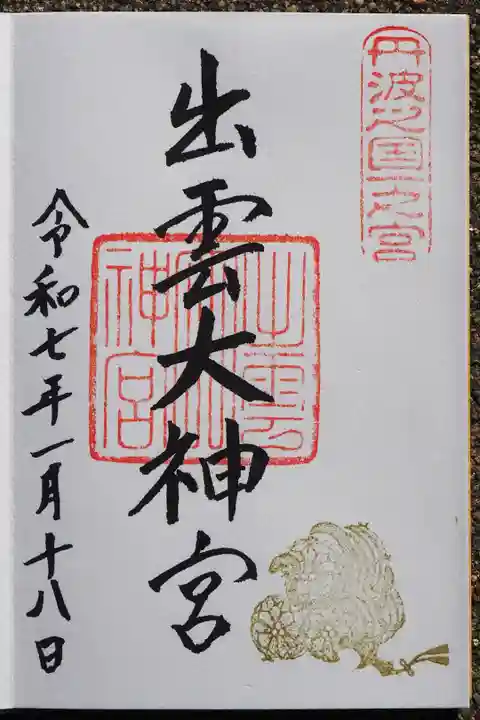 丹波之国一之宮
出雲大神宮
出雲
神宮
令和七年一月十八日